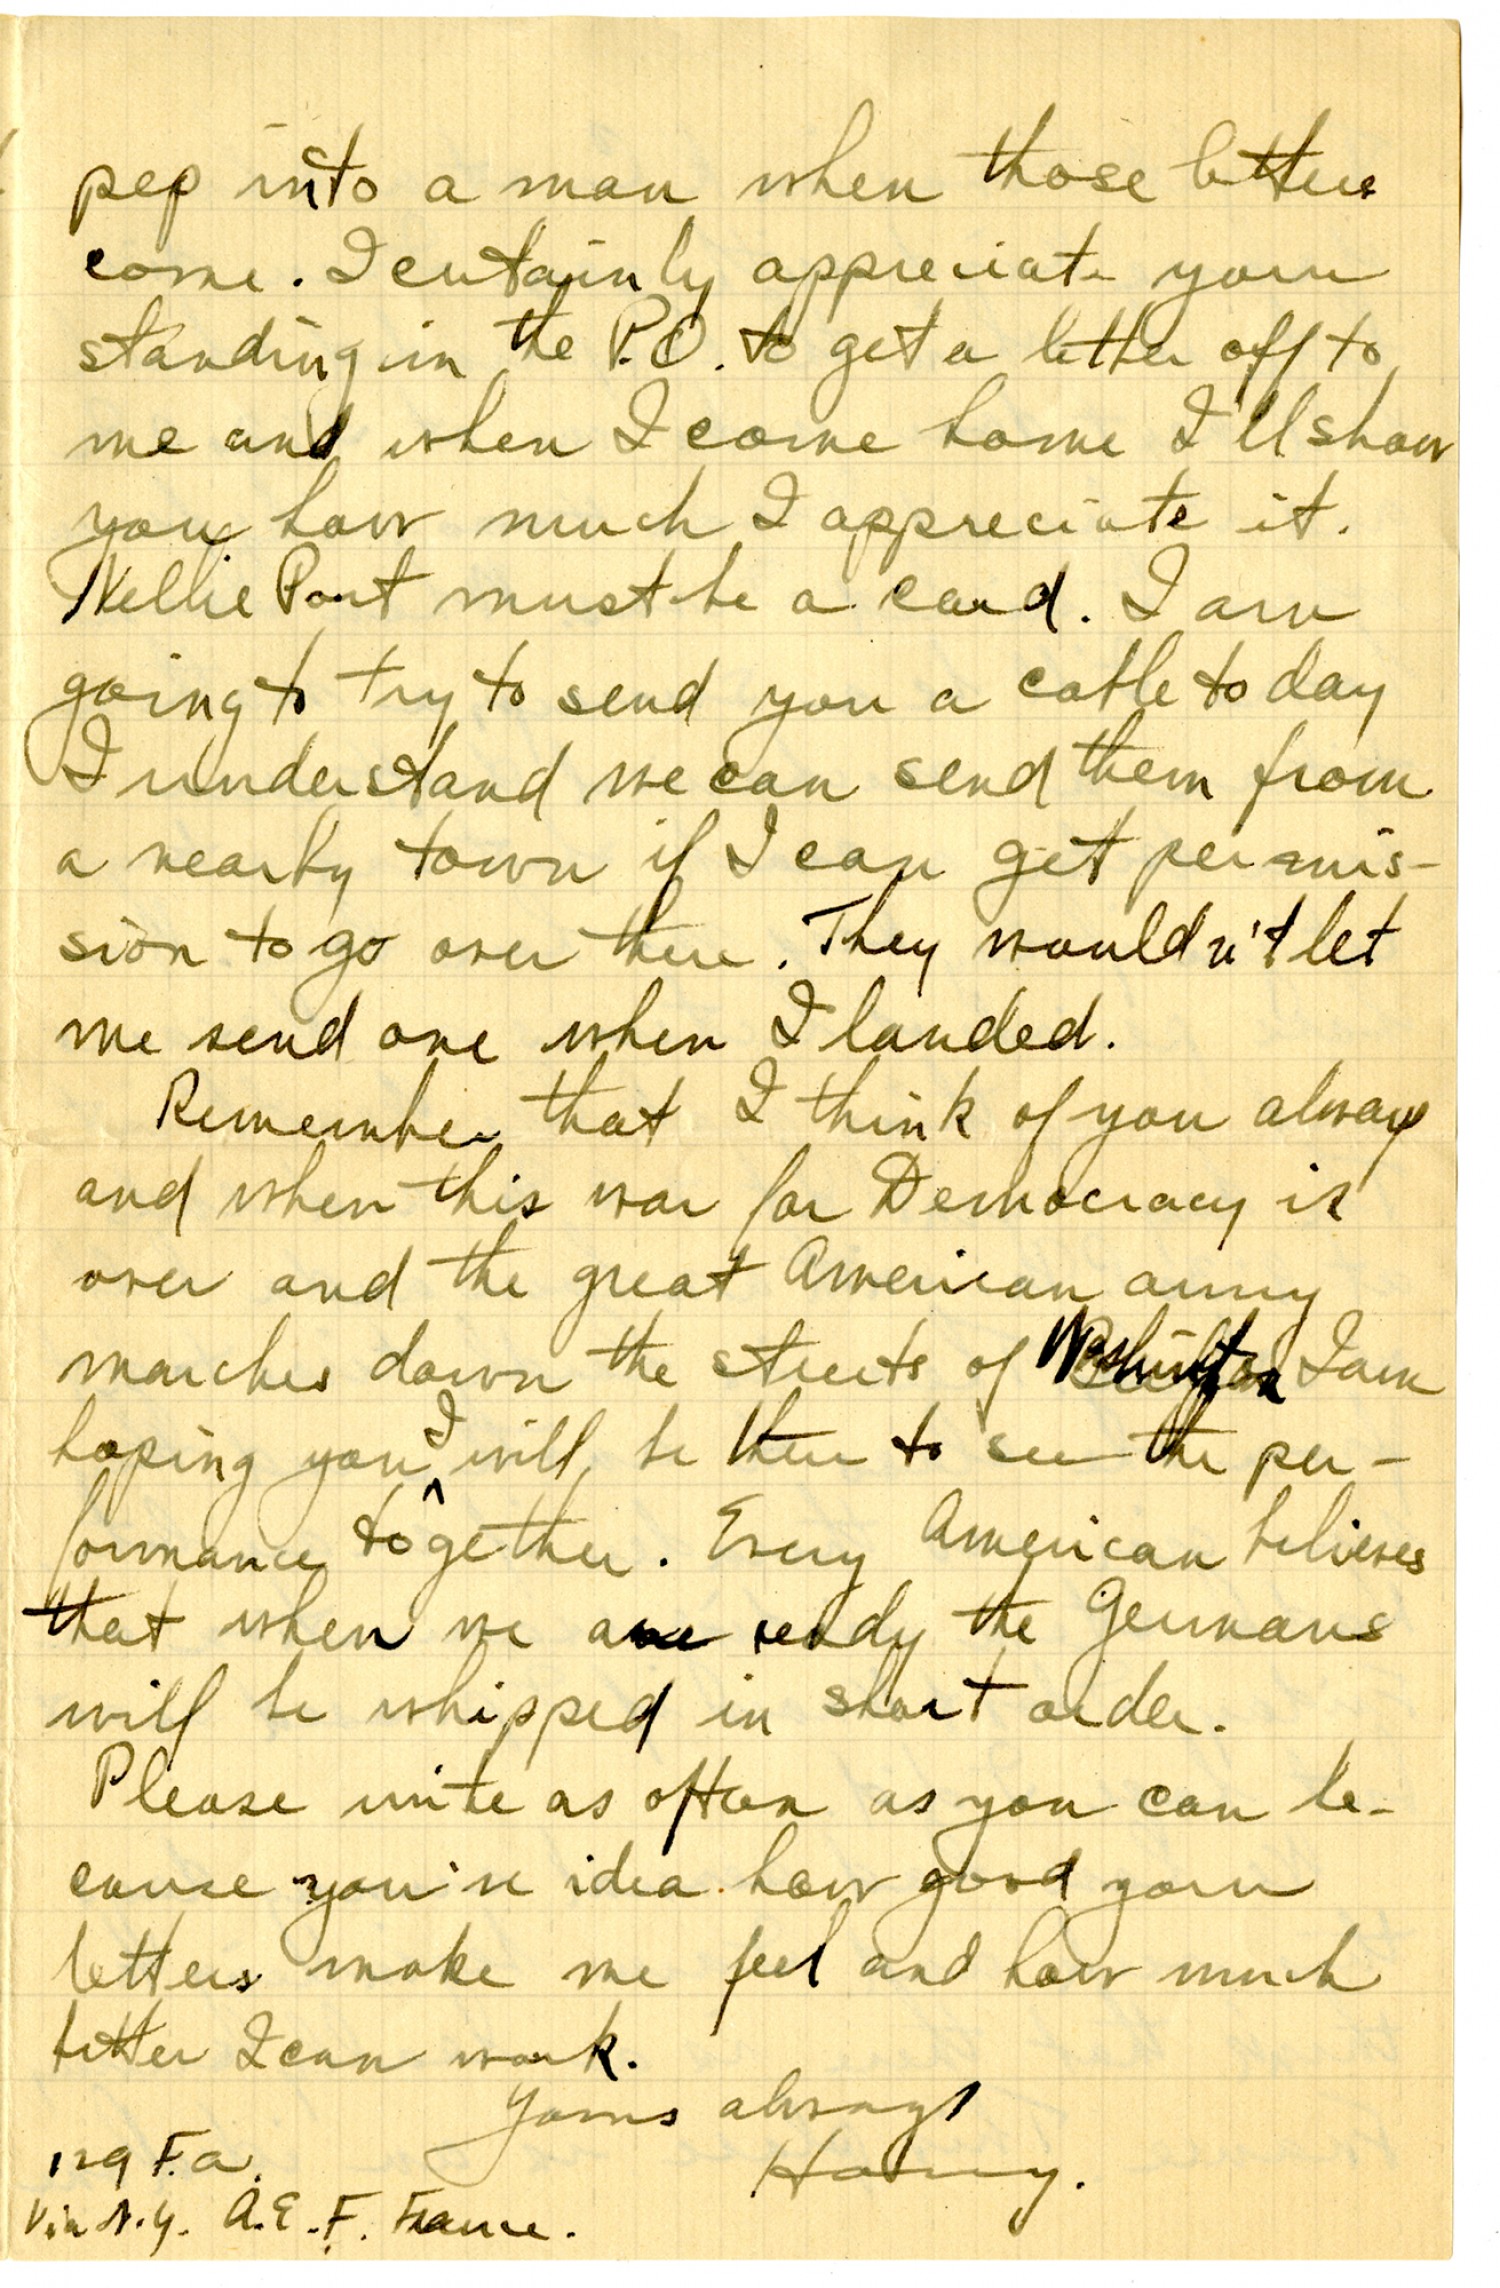 pep into a man when those letters
come. I certainly appreciate your
standing in the P.O. to get a letter off to
me and when I come home I'll show
you how much I appreciate it.
Nellie Pont must be a card. I am
going to try to send you a cable today
I understand we can send them from
a nearby town if I can get permis-
sion to go over there. They wouldn't let
me send one when I landed.
Remember that I think of you always
and when this war for Democracy is
over and the great American army
marches down the streets of Washington I am
hoping you I will be there to see the per-
formance together. Every American believes
that when we are ready the Germans
will be whipped in short order.
Please write as often as you can be-
cause you've idea how good your
letters make me feel and how much
better I can work.
Yours always
Harry.
129 F.A.
Via N.Y. A.E.F. France.